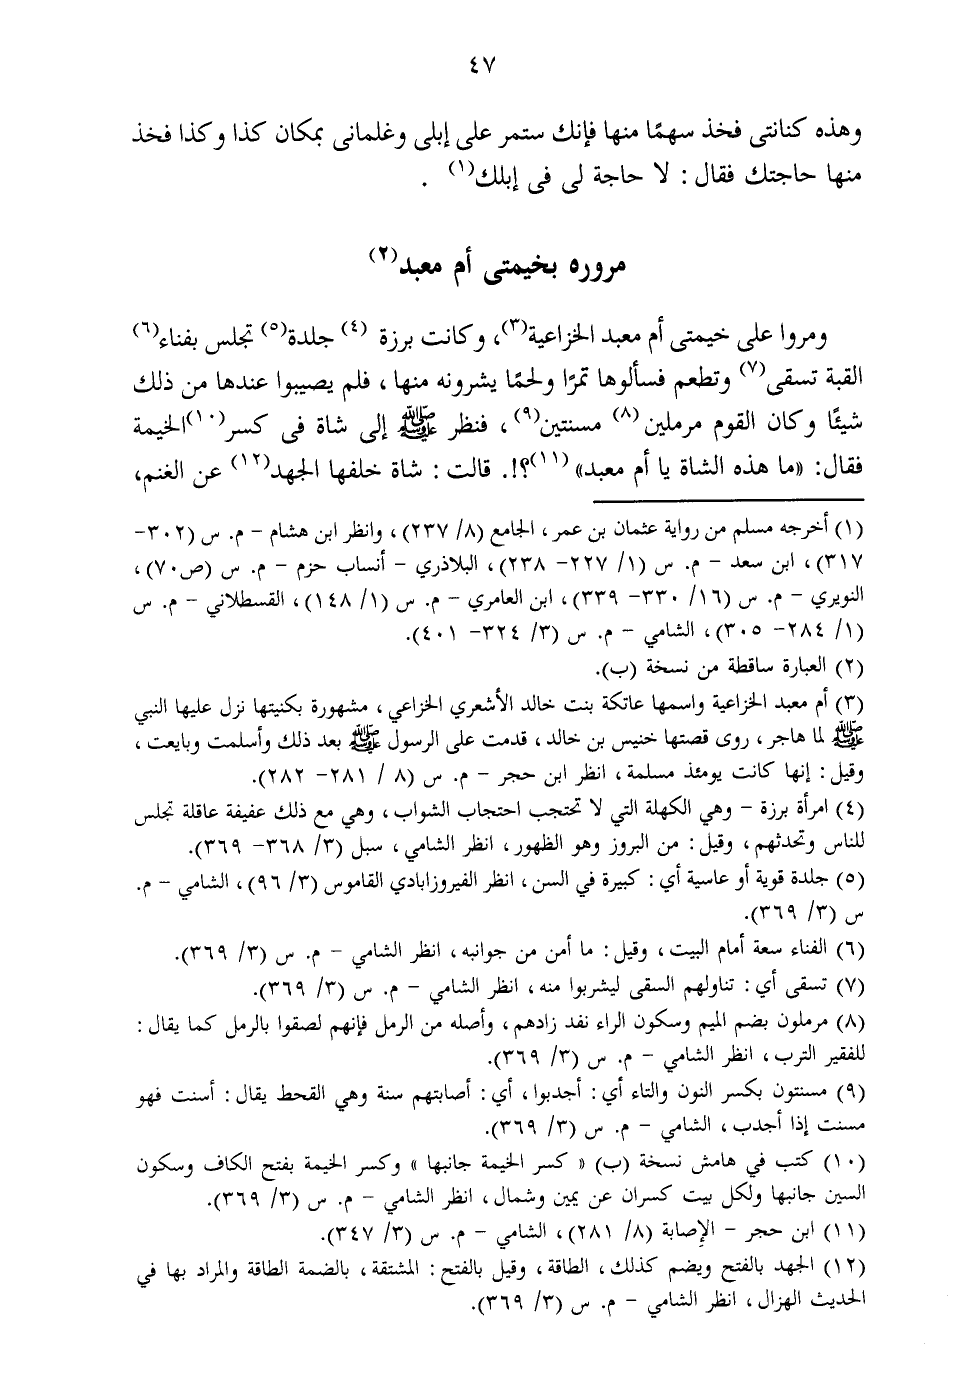 ٤٧
وهذه كنانتى فخذ سهمًا منها فإنك ستمر على إبلى وغلمانى بمكان كذا وكذا فخذ
منها حاجتك فقال : لا حاجة لى فى إبلك(١) .
مروره بخيمتى أم معبد(٢)
ومروا على خيمتى أم معبد الخزاعية(٣)، وكانت برزة (٤) جلدة(٥) تجلس بفناء(٦)
القبة تسقى(٧) وتطعم فسألوها تمرًا ولحمًا يشرونه منها ، فلم يصيبوا عندها من ذلك
شيئًا وكان القوم مرملين(٨) مسنتين(٩) ، فنظر ﷺ إلى شاة فى كسر(١٠)الخيمة
فقال: «ما هذه الشاة يا أم معبد» (١١)؟!. قالت : شاة خلفها الجهد(١٢) عن الغنم،
(١) أخرجه مسلم من رواية عثمان بن عمر ، الجامع (٨/ ٢٣٧) ، وانظر ابن هشام – م. س (٣٠٢–
٣١٧) ، ابن سعد – م. س (١/ ٢٢٧– ٢٣٨) ، البلاذري – أنساب حزم – م. س (ص٧٠) ،
النويري – م. س (١٦/ ٣٣٠– ٣٣٩) ، ابن العامري – م. س (١/ ١٤٨) ، القسطلاني – م. س
(١/ ٢٨٤– ٣٠٥) ، الشامي – م. س (٣/ ٣٢٤– ٤٠١).
(٢) العبارة ساقطة من نسخة (ب).
(٣) أم معبد الخزاعية واسمها عاتكة بنت خالد الأشعري الخزاعي ، مشهورة بكنيتها نزل عليها النبي
ﷺ لما هاجر ، روى قصتها خنيس بن خالد ، قدمت على الرسول ﷺ بعد ذلك وأسلمت وبايعت ،
وقيل : إنها كانت يومئذ مسلمة ، انظر ابن حجر – م. س (٨ / ٢٨١– ٢٨٢).
(٤) امرأة برزة – وهي الكهلة التي لا تحتجب احتجاب الشواب ، وهي مع ذلك عفيفة عاقلة تجلس
للناس وتحدثهم ، وقيل : من البروز وهو الظهور ، انظر الشامي ، سبل (٣/ ٣٦٨– ٣٦٩).
(٥) جلدة قوية أو عاسية أي : كبيرة في السن ، انظر الفيروزابادي القاموس (٣/ ٩٦) ، الشامي – م.
س (٣/ ٣٦٩).
(٦) الفناء سعة أمام البيت ، وقيل : ما أمن من جوانبه ، انظر الشامي – م. س (٣/ ٣٦٩).
(٧) تسقى أي : تناولهم السقى ليشربوا منه ، انظر الشامي – م. س (٣/ ٣٦٩).
(٨) مرملون بضم الميم وسكون الراء نفد زادهم ، وأصله من الرمل فإنهم لصقوا بالرمل كما يقال :
للفقير الترب ، انظر الشامي – م. س (٣/ ٣٦٩).
(٩) مسنتون بكسر النون والتاء أي : أجدبوا ، أي : أصابتهم سنة وهي القحط يقال : أسنت فهو
مسنت إذا أجدب ، الشامي – م. س (٣/ ٣٦٩).
(١٠) كتب في هامش نسخة (ب) « كسر الخيمة جانبها » وكسر الخيمة بفتح الكاف وسكون
السين جانبها ولكل بيت كسران عن يمين وشمال ، انظر الشامي – م. س (٣/ ٣٦٩).
(١١) ابن حجر – الإصابة (٨/ ٢٨١) ، الشامي – م. س (٣/ ٣٤٧).
(١٢) الجهد بالفتح ويضم كذلك ، الطاقة ، وقيل بالفتح : المشتقة ، بالضمة الطاقة والمراد بها في
الحديث الهزال ، انظر الشامي – م. س (٣/ ٣٦٩).